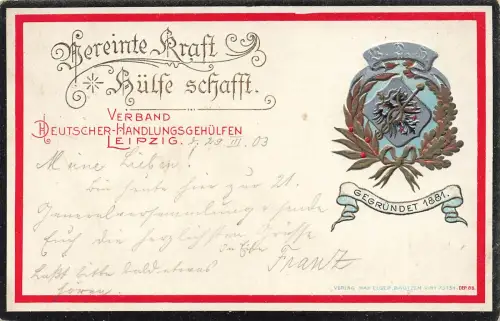 Vereinte Kraft
Hülfe schafft.
VERBAND
DEUTSCHER-HANDLUNGSGEHÜLFEN
LEIPZIG. 29 III. 03
Meine Lieben!
bin heute hier zur 21.
Generalversammlung sende
Euch die herzlichsten Grüsse
In Eile
Franz
Laßt bitte bald etwas
hören.
GEGRÜNDET 1881.